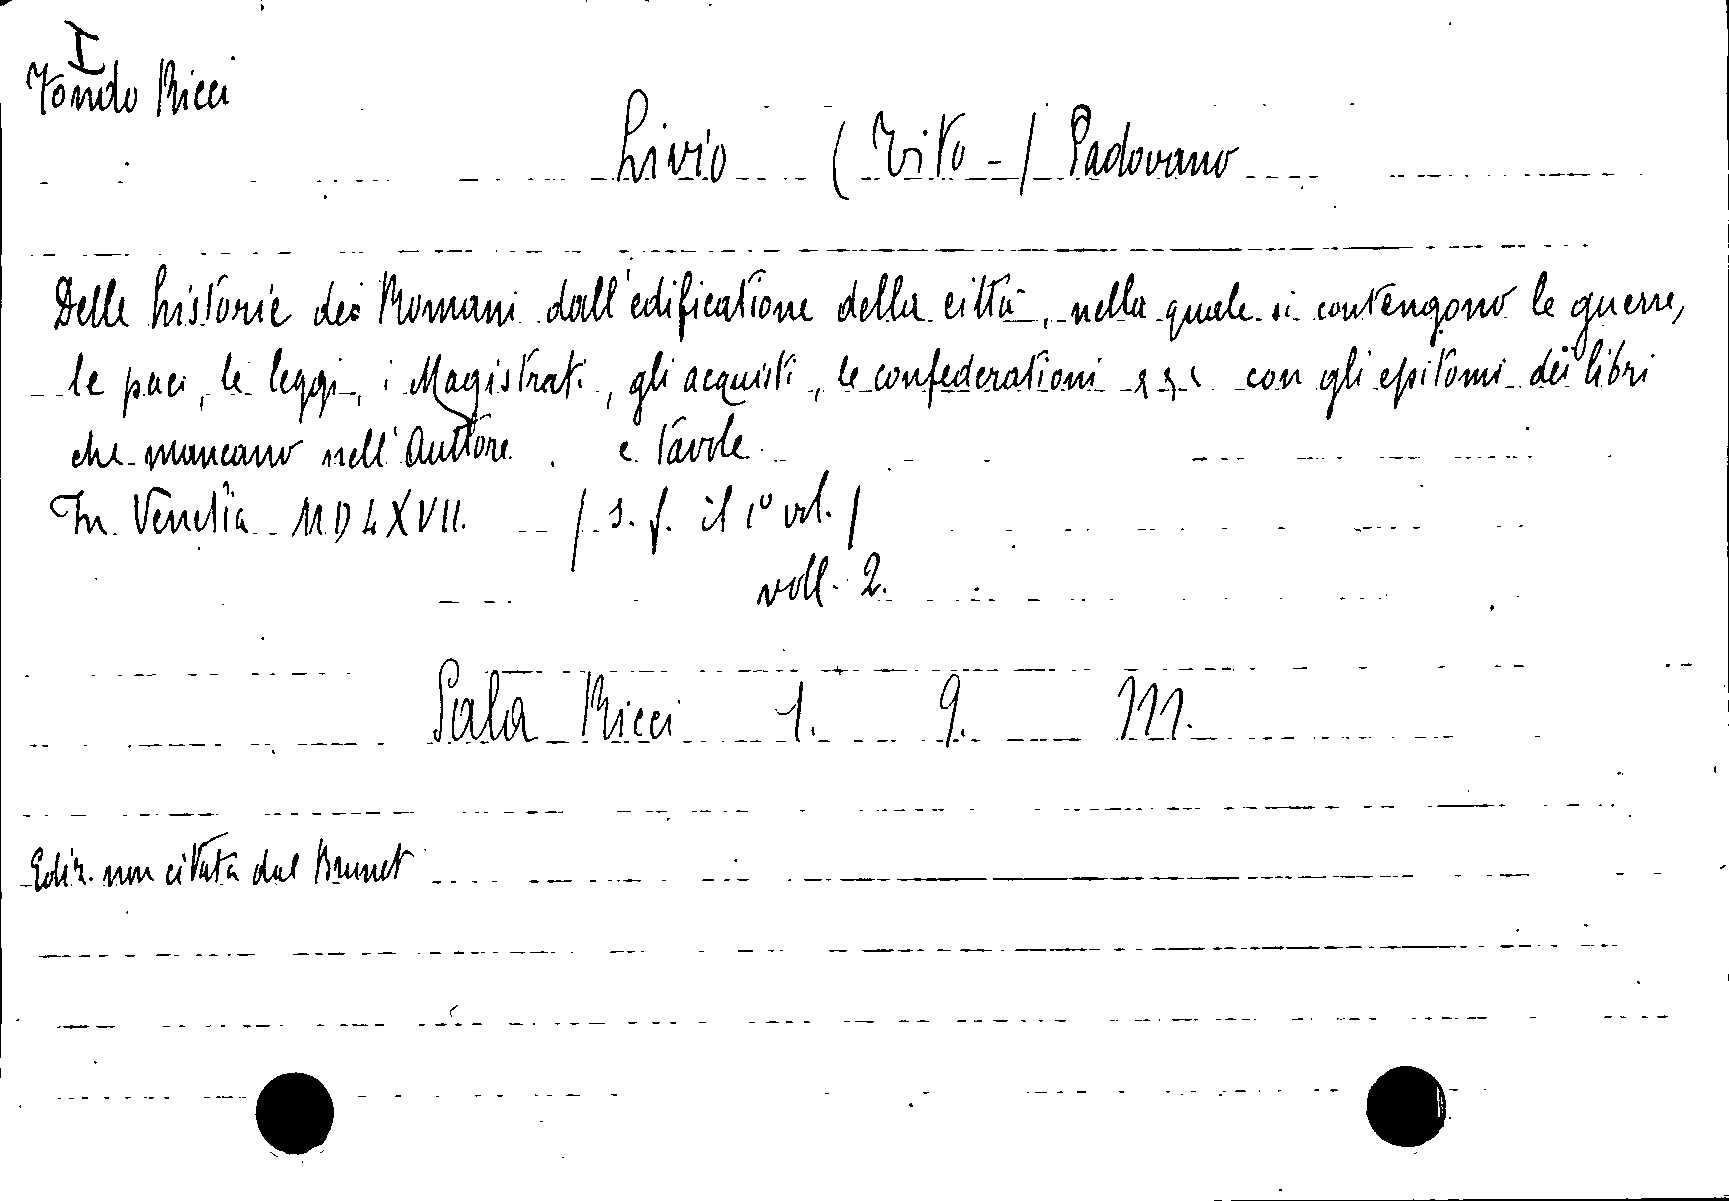 I
Fondo Ricci
Livio (Tito-) Padovano
Delle historie dei Romani dall'edificatione della città, nella quale si contengono le guerre,
le paci, le leggi, i Magistrati, gli acquisti, le confederationi &&c con gli epitomi dei libri
che mancano nell'Auttore. e tavole
In Venetia MDLXVII. / s. f. il 1º vol. /
voll. 2.
Sala Ricci 1. 9. 111.
Ediz. non citata dal Brunet